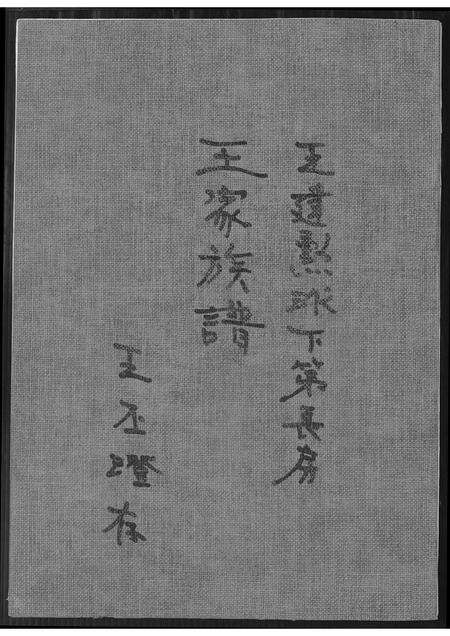 王建㷍派下第長房
王家族譜
王丕澄存